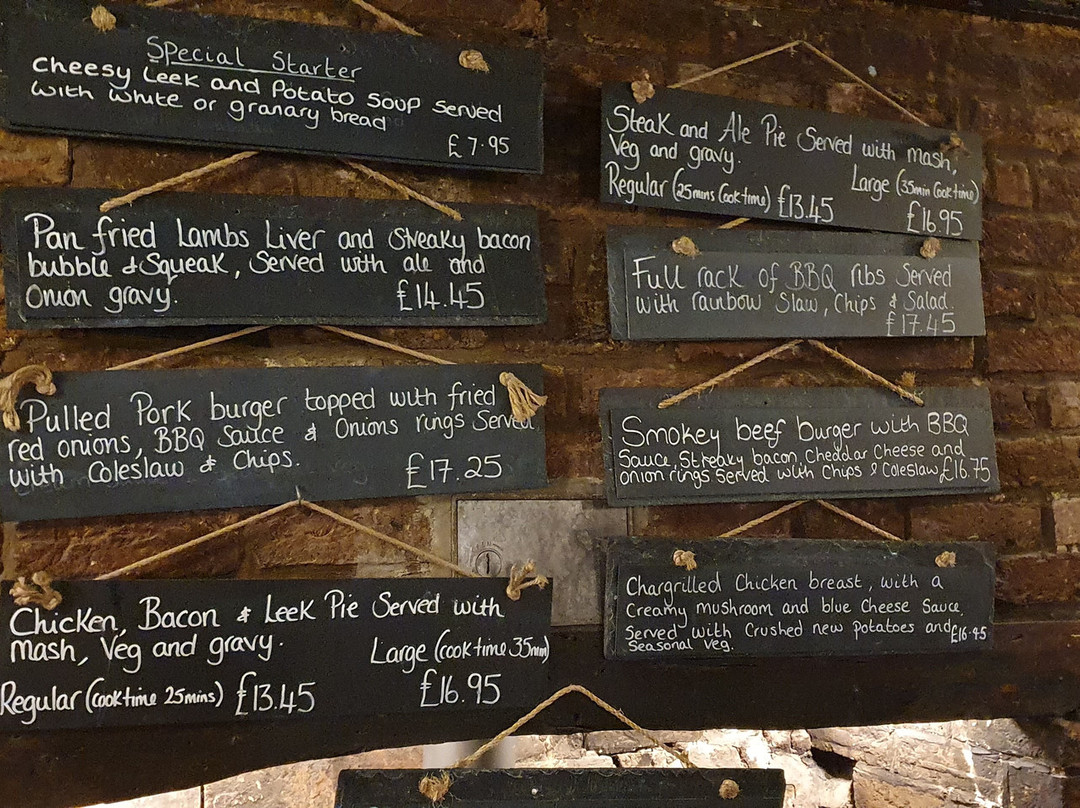 Special Starter
Cheesy Leek and Potato Soup Served
with white or granary bread
£7.95
Pan fried Lambs Liver and Streaky bacon
bubble & Squeak, Served with ale and
onion gravy. £14.45
Pulled Pork burger topped with fried
red onions, BBQ Sauce & Onions rings Served
with Coleslaw & Chips. £17.25
Chicken, Bacon & Leek Pie Served with
mash, Veg and gravy. Large (cook time 35min)
Regular (cook time 25mins) £13.45 £16.95
Steak and Ale Pie Served with mash,
Veg and gravy.
Regular (25mins Cook time) £13.45 Large (35min Cook time)
£16.95
Full rack of BBQ ribs Served
with rainbow Slaw, Chips & Salad.
£17.45
Smokey beef burger with BBQ
Sauce, Streaky bacon, Cheddar Cheese and
onion rings Served with Chips & Coleslaw £16.75
Chargrilled Chicken breast, with a
Creamy mushroom and blue Cheese Sauce,
Served with Crushed new potatoes and £16.45
Seasonal Veg.